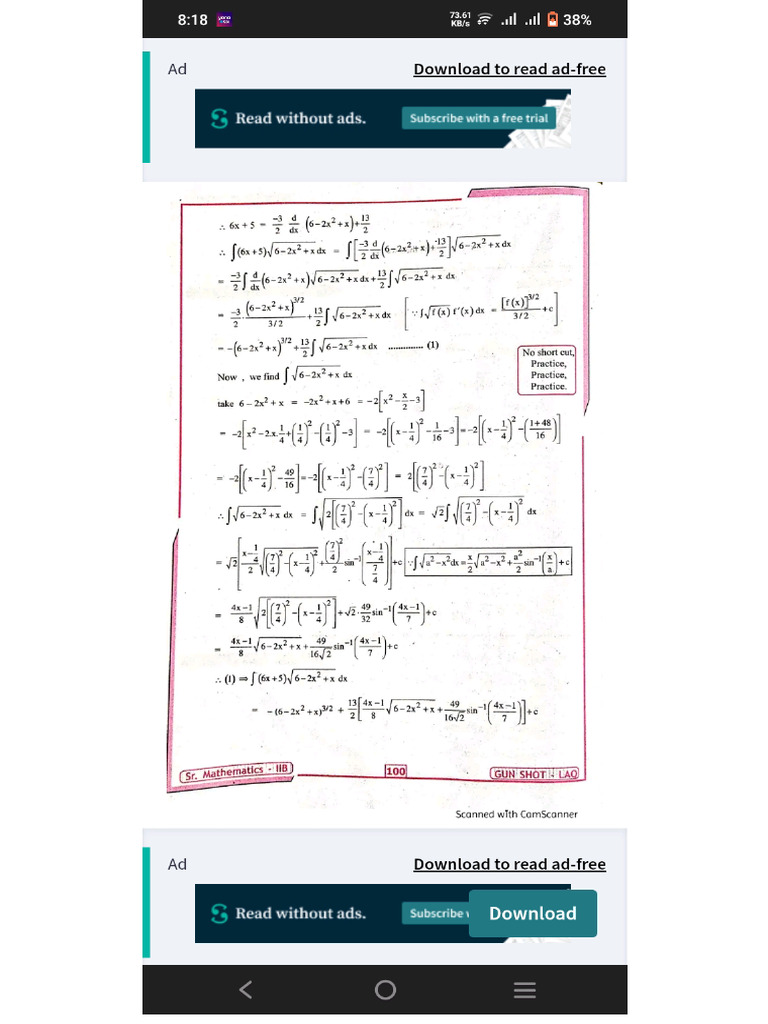 8:18 yono SBI 73.61 KB/s 38%
Ad Download to read ad-free
Read without ads. Subscribe with a free trial
∴ 6x + 5 = -3/2 d/dx (6−2x²+x)+13/2
∴ ∫(6x+5)√(6−2x²+x) dx = ∫[-3/2 d/dx (6−2x²+x)+13/2]√(6−2x²+x) dx
= -3/2 ∫ d/dx (6−2x²+x)√(6−2x²+x) dx + 13/2 ∫√(6−2x²+x) dx
= -3/2 · (6−2x²+x)^3/2 / 3/2 + 13/2 ∫√(6−2x²+x) dx [∵ ∫√f(x) f'(x) dx = [f(x)]^3/2 / 3/2 + c]
= −(6−2x²+x)^3/2 + 13/2 ∫√(6−2x²+x) dx .............. (1)
No short cut,
Practice,
Practice,
Practice.
Now , we find ∫√(6−2x²+x) dx
take 6 − 2x² + x = −2x²+x+6 = −2[x² − x/2 − 3]
= −2[x² − 2.x.1/4 + (1/4)² − (1/4)² − 3] = −2[(x − 1/4)² − 1/16 − 3] = −2[(x − 1/4)² − (1+48/16)]
= −2[(x − 1/4)² − 49/16] = −2[(x − 1/4)² − (7/4)²] = 2[(7/4)² − (x − 1/4)²]
∴ ∫√(6−2x²+x) dx = ∫√(2[(7/4)² − (x − 1/4)²]) dx = √2 ∫√((7/4)² − (x − 1/4)²) dx
= √2 [x−1/4 / 2 √((7/4)² − (x − 1/4)²) + (7/4)² / 2 sin⁻¹(x−1/4 / 7/4)] + c ∵ ∫√(a²−x²) dx = x/2 √(a²−x²) + a²/2 sin⁻¹(x/a) + c
= 4x−1/8 √(2[(7/4)² − (x − 1/4)²]) + √2 · 49/32 sin⁻¹(4x−1/7) + c
= 4x−1/8 √(6−2x²+x) + 49/16√2 sin⁻¹(4x−1/7) + c
∴ (1) ⇒ ∫(6x+5)√(6−2x²+x) dx
= −(6−2x²+x)^3/2 + 13/2 [4x−1/8 √(6−2x²+x) + 49/16√2 sin⁻¹(4x−1/7)] + c
Sr. Mathematics - IIB 100 GUN SHOT - LAQ
Scanned with CamScanner
Ad Download to read ad-free
Read without ads. Subscribe Download